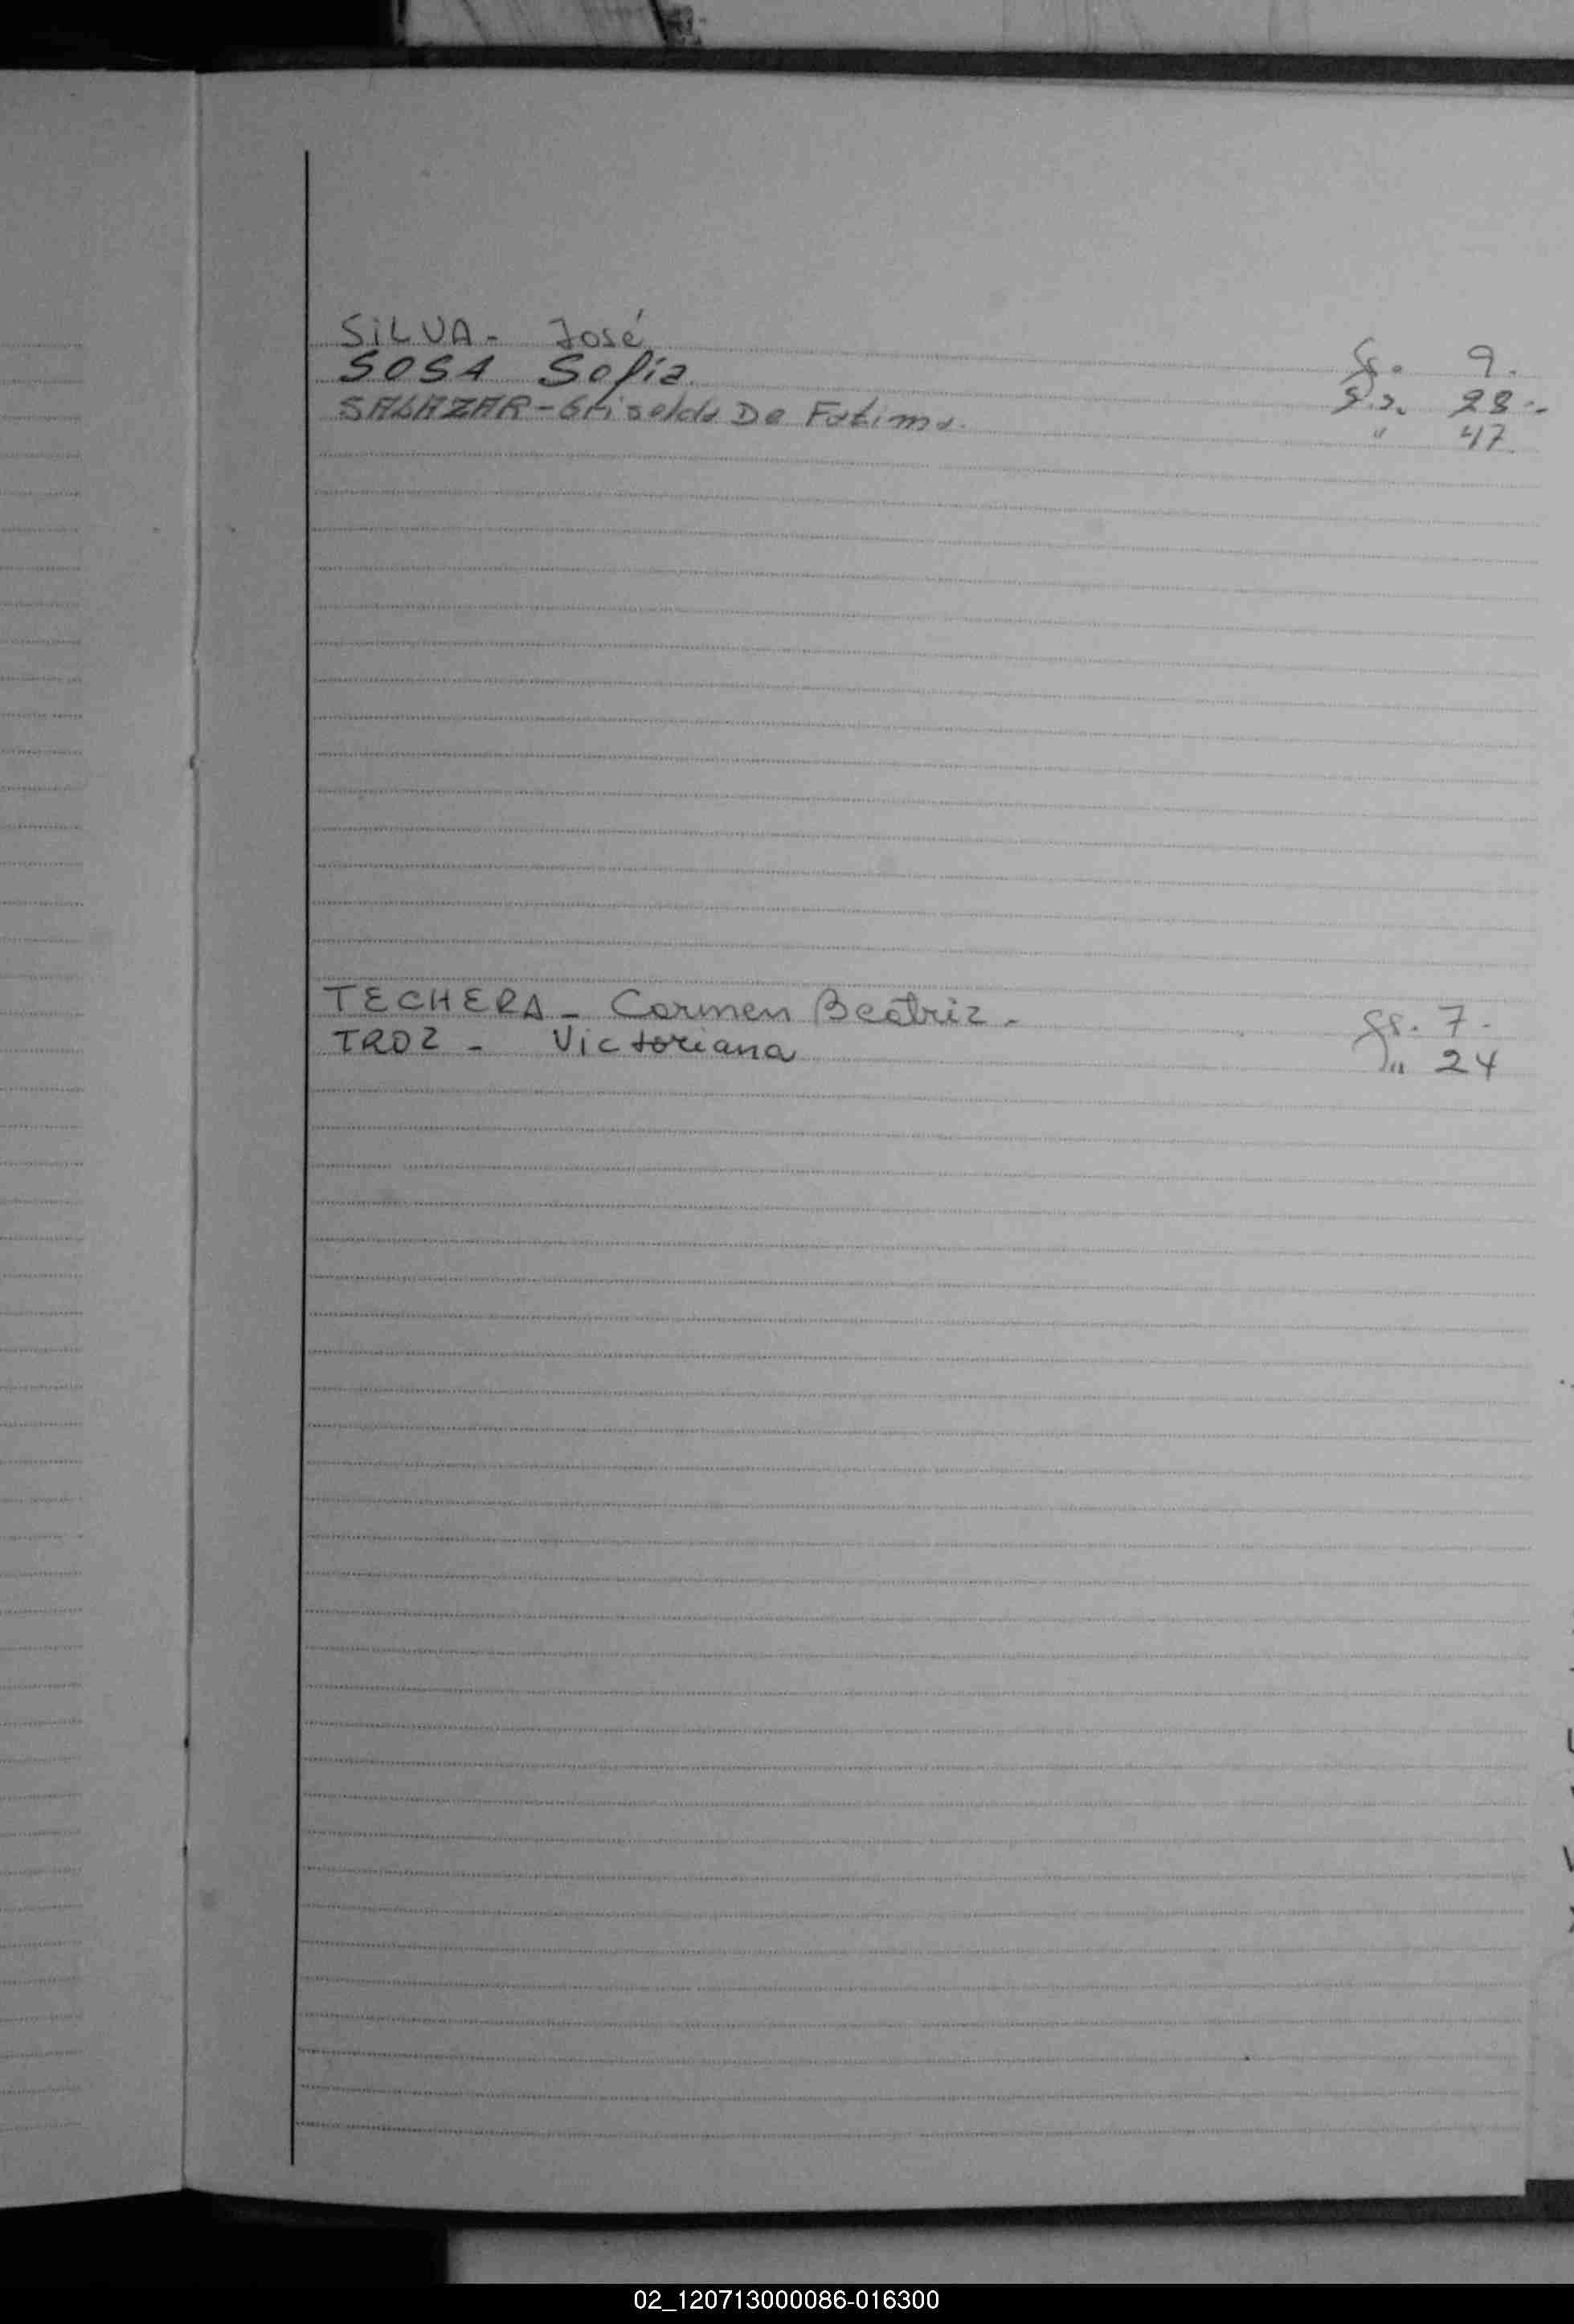 SILVA - José fs. 9.
SOSA Sofía fs. 28.-
SALAZAR - Griselda De Fatima. " 47
TECHERA - Carmen Beatriz - fs. 7.
TROZ - Victoriana " 24
02_120713000086-016300